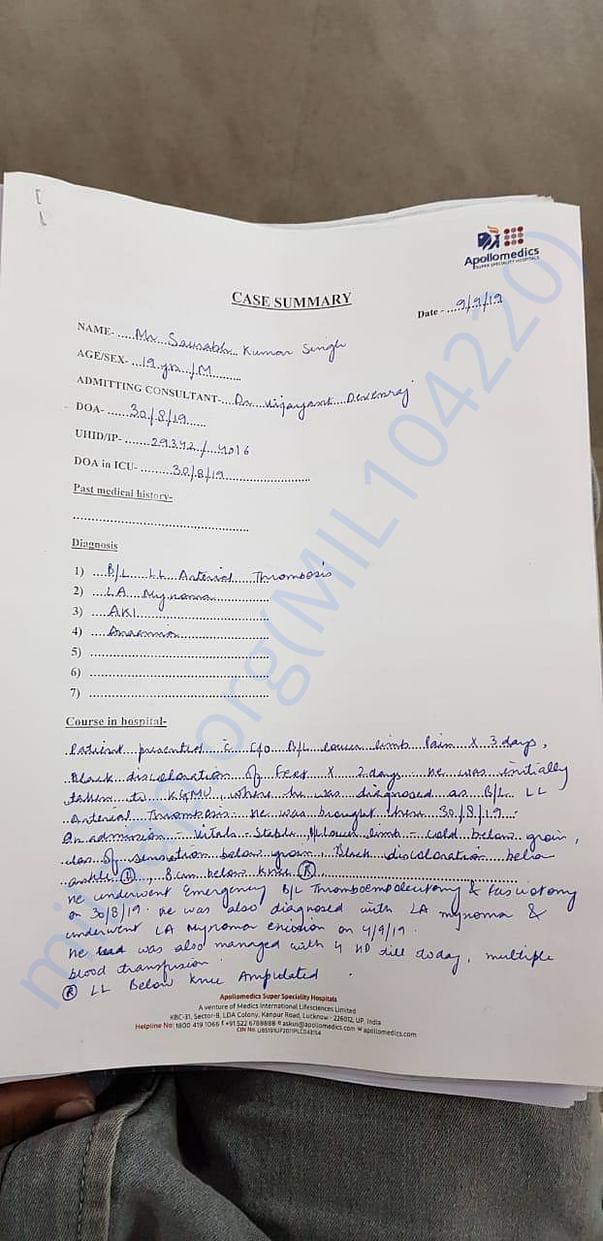 Apollomedics
SUPER SPECIALITY HOSPITALS
CASE SUMMARY
Date - ....9/9/19
NAME- ..... Mr. Saurabh Kumar Singh
AGE/SEX- ... 19 yrs /M
ADMITTING CONSULTANT- ... Dr. Vijayant Devenraj
DOA- ...... 30/8/19
UHID/IP- ....... 29342/4016
DOA in ICU- ......... 30/8/19
Past medical history-
Diagnosis
1) B/L LL Arterial Thrombosis
2) LA Myxoma
3) AKI
4) Anaemia
5)
6)
7)
Course in hospital-
Patient presented c̄ C/o B/L lower limb Pain X 3 days,
Black discoloration of Feet X 2 days. He was initially
taken to KGMU where he was diagnosed as B/L LL
Arterial Thrombosis. He was brought here 30/8/19.
On admission - Vitals - Stable, B/L lower limb - cold below groin,
loss of sensation below groin. Black discoloration below
ankle , 8 cm below knee Ⓡ
He underwent Emergency B/L Thromboembolectomy & Fasciotomy
on 30/8/19. He was also diagnosed with LA myxoma &
underwent LA Myxoma excision on 4/9/19.
He was also managed with 4 HD till today, multiple
blood transfusion.
Ⓡ LL Below Knee Amputated.
Apollomedics Super Speciality Hospitals
A venture of Medics International Lifesciences Limited
KBC-31, Sector-B, LDA Colony, Kanpur Road, Lucknow - 226012, UP, India
Helpline No: 1800 419 1066 +91 522 6788888 askus@apollomedics.com apollomedics.com
CIN No.
milaap.org(MIL1042220)